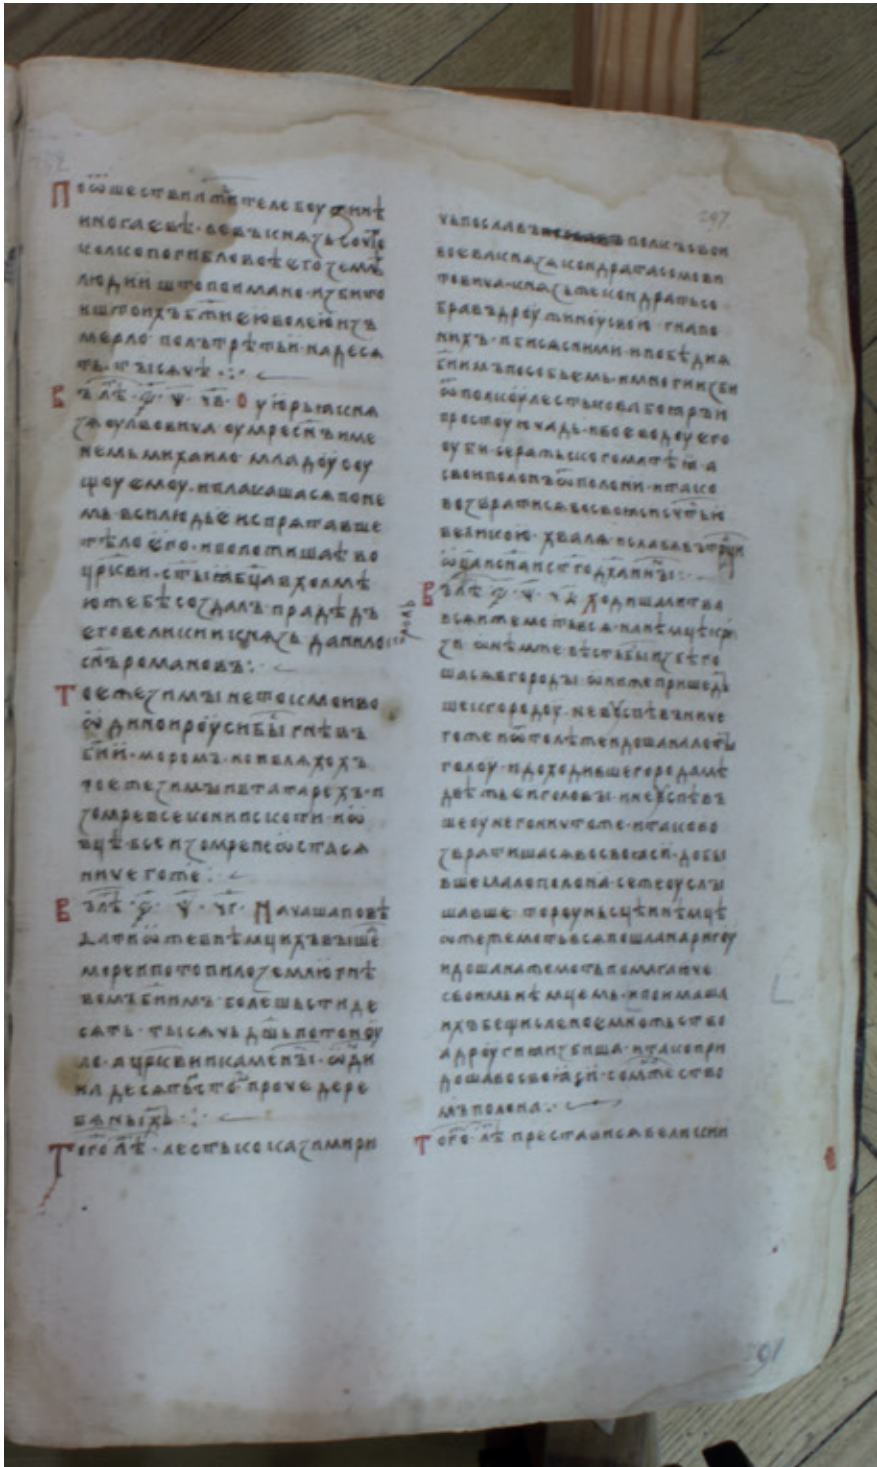 По ѿшествии же телебоужинѣ
и ногаевѣ · левъ кнѧзь сочте
колко погибло во его землѣ
людии што поимано избито
и што ихъ бж҃иею волею изъ
мерло · полътрѣтьи надеся
ть · тысячѣ ·:·
В лѣ҃ · ҂ѕ · ѱ · чв · Оу юрьѧ кнѧ
зѧ оу лвовича оумре сн҃ъ име
немь михаило младоу соу
щоу емоу · и плакашасѧ по не
мь вси людье и спрѧтавше
тѣло его · и положишаѣ во
цр҃кви · ст҃ыꙗ бц҃а в холмѣ
юже бѣ создалъ прадѣдъ
его великии кнѧзь данило
сн҃ъ романовъ :·
король
Тое же зимы не токмо и во
ѿдинои роуси бы гнѣвъ
бж҃ии · моромъ · но и в лѧхохъ
тое же зимы и в татарехъ · и
зомре все кони и скоти · и ѿ
вцѣ · все изомре не ѡстасѧ
ничего же :·
Въ лѣ҃ · ҂ѕ · ѱ · чг · Начаша повѣ
дати ѡже в нѣмцихъ вышѣ
море и потопило землю гнѣ
вомъ бж҃иимъ · болѣ шьсти де
сѧтъ · тысѧчь дш҃ь потоноу
ло · а цр҃кви и каменыи · ѡди
ина десѧть сто · проче дере
вѧныхъ ·:·
Того лѣ҃ · лестько казимири
чь пославъ полкъ свои
воева кнѧзѧ кондрата сомови
товича · кнѧзь же кондратъ со
бравъ дроужиноу свою · гна по
нихъ · и бисѧ с ними · и побѣди ѧ
бж҃иимъ пособьемь · и многи изби
ѿ полкоу лестькова боꙗръ и
простоую чадь · и воеводоу его
оуби · сератьского матѣꙗ · а
свои полонъ ѿполони · и тако
возвратисѧ во своꙗси с чтью
великою · хвалѧ и славѧ въ трц҃и
ѿц҃а и сн҃а и ст҃го дх҃а ·:
Въ лѣ҃ · ҂ѕ · ѱ · чд · Ходиша литва
всѧ и жемоть всѧ · на нѣмцѣ к ри
зи · ѡнѣм же вѣсть бы избѣго
шасѧ в городы · ѡни же пришед
ше к городоу · не въспѣвъ ниче
гоже и ѿтолѣ же идоша на лоты
голоу · и доходивше города мѣ
двѣжьеи головы · и не оуспѣвъ
ше оу него ничтоже · и тако во
звратишасѧ во своꙗси · добы
вше мало полона · се же оуслы
шавше · тороуньсциѣ нѣмцѣ
ѡже жемоть всѧ пошла на ригоу
идоша на жемоть помагаюче
своимь нѣмцемь · и поимаша
ихъ бещислено е множьство
а дроугиꙗ избиша · и тако при
доша во своꙗси · со множество
мъ полона :·
Того · лѣ҃ престависѧ великии
297
291